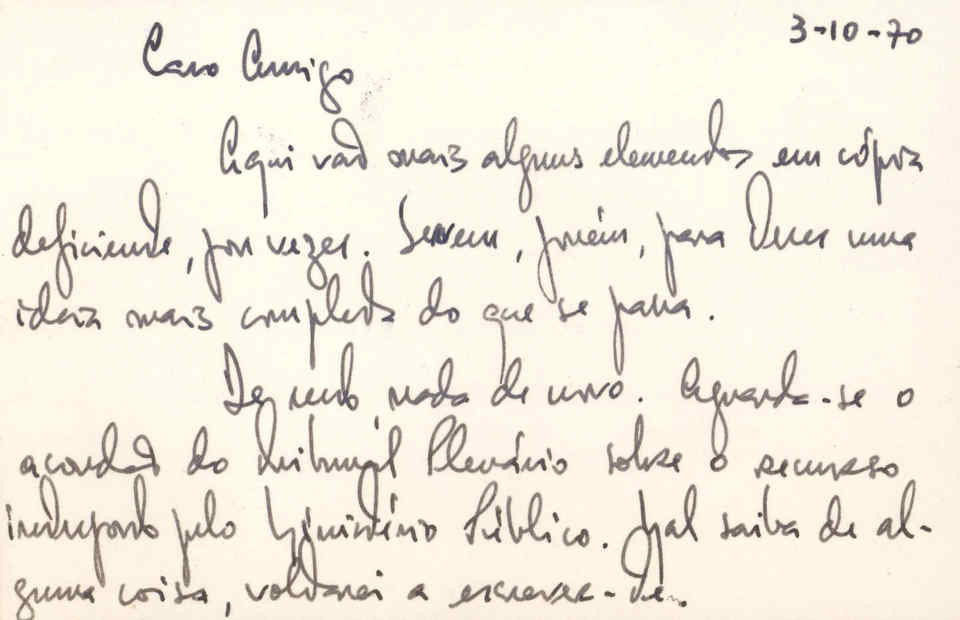 3-10-70
Caro Amigo
Aqui vão mais alguns elementos em cópia
deficiente, por vezes. Servem, porém, para teres uma
ideia mais completa do que se passa.
De resto, nada de novo. Aguarda-se o
acordão do Tribunal Plenário sobre o recurso
interposto pelo Ministério Público. Mal saiba de al-
guma coisa, voltarei a escrever-te.